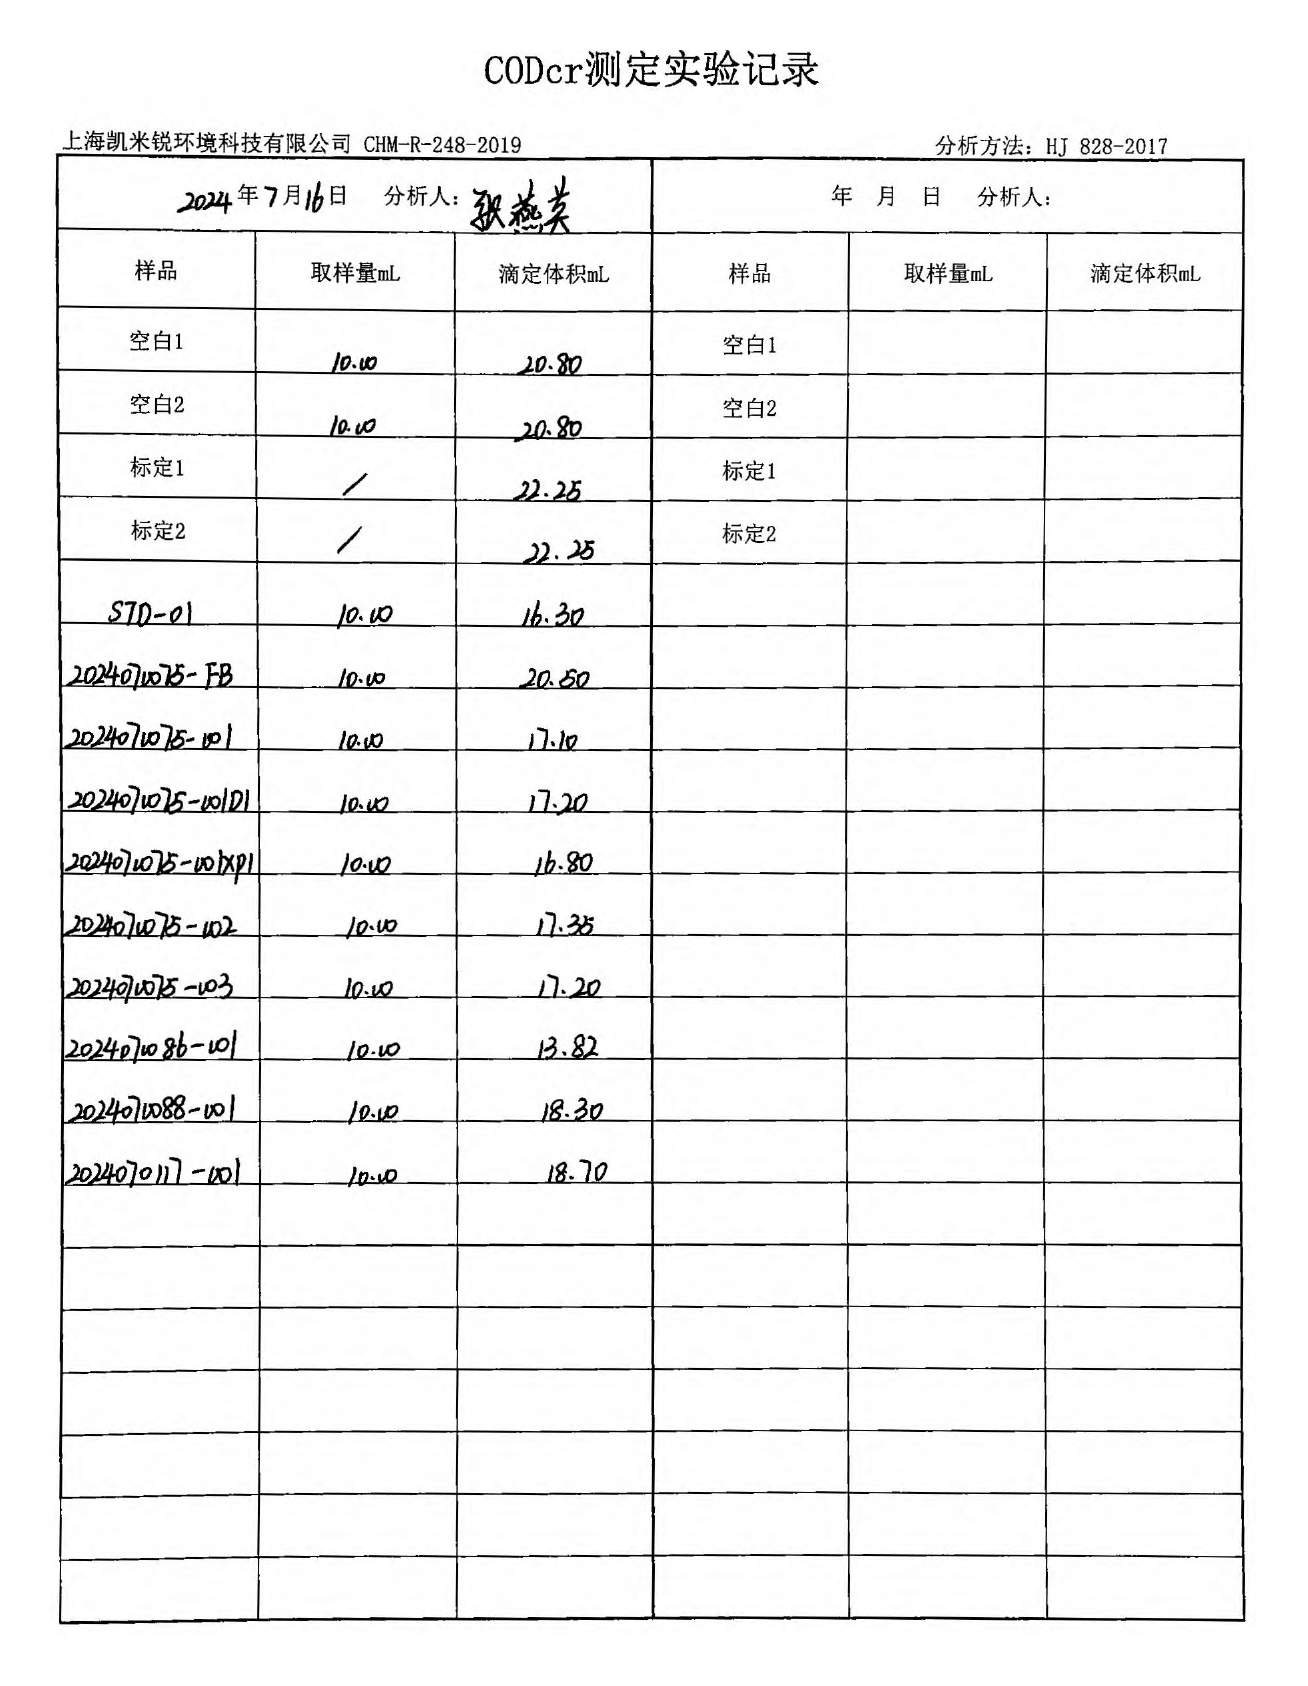 CODcr测定实验记录
上海凯米锐环境科技有限公司 CHM-R-248-2019 分析方法: HJ 828-2017
2024年7月16日 分析人: 张燕英 年 月 日 分析人:
样品 取样量mL 滴定体积mL 样品 取样量mL 滴定体积mL
空白1 10.00 20.80 空白1
空白2 10.00 20.80 空白2
标定1 / 22.25 标定1
标定2 / 22.25 标定2
STD-01 10.00 16.30
2024070075-FB 10.00 20.50
2024070075-001 10.00 17.10
2024070075-001D1 10.00 17.20
2024070075-001XP1 10.00 16.80
2024070075-002 10.00 17.35
2024070075-003 10.00 17.20
2024070086-001 10.00 13.82
2024070088-001 10.00 18.30
2024070117-001 10.00 18.70